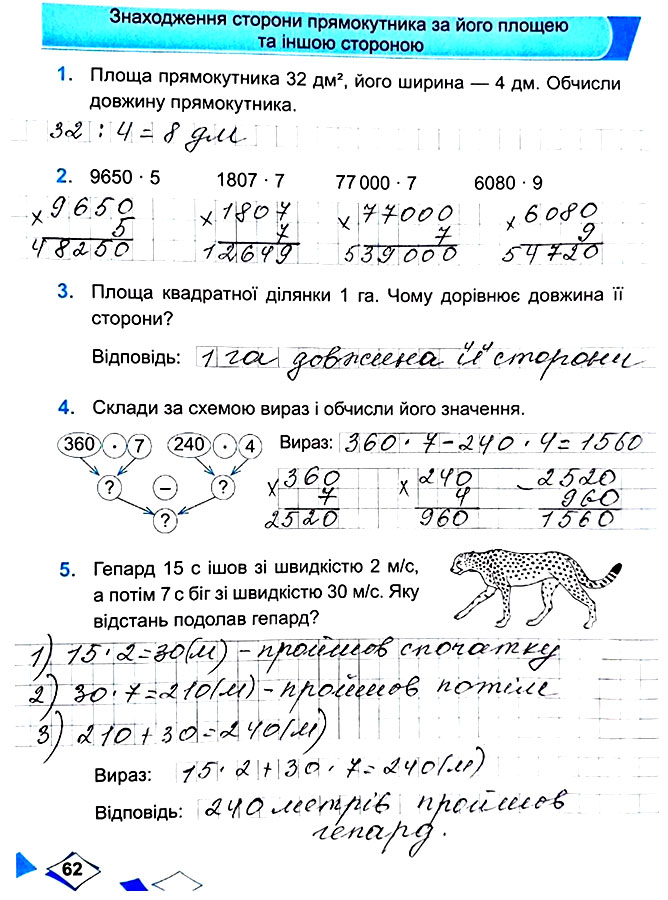 Знаходження сторони прямокутника за його площею
та іншою стороною
1. Площа прямокутника 32 дм², його ширина — 4 дм. Обчисли
довжину прямокутника.
32 : 4 = 8 дм
2. 9650 · 5 1807 · 7 77 000 · 7 6080 · 9
× 9650 × 1807 × 77000 × 6080
5 7 7 9
48250 12649 539000 54720
3. Площа квадратної ділянки 1 га. Чому дорівнює довжина її
сторони?
Відповідь: 1 га довжина її сторони
4. Склади за схемою вираз і обчисли його значення.
360 · 7 240 · 4 Вираз: 360 · 7 - 240 · 4 = 1560
? − ? × 360 × 240 - 2520
7 4 960
? 2520 960 1560
5. Гепард 15 с ішов зі швидкістю 2 м/с,
а потім 7 с біг зі швидкістю 30 м/с. Яку
відстань подолав гепард?
1) 15 · 2 = 30 (м) - пройшов спочатку
2) 30 · 7 = 210 (м) - пройшов потім
3) 210 + 30 = 240 (м)
Вираз: 15 · 2 + 30 · 7 = 240 (м)
Відповідь: 240 метрів пройшов
гепард.
62